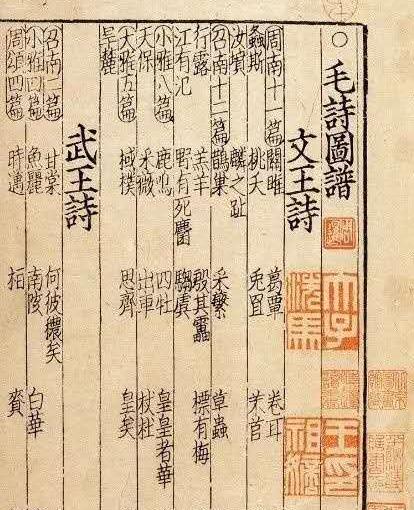 ○毛詩圖譜
文王詩
周南十一篇 關雎 葛覃 卷耳
螽斯 桃夭 兔罝 芣苢
汝墳 麟之趾
召南十二篇 鵲巢 采蘩 草蟲
行露 羔羊 殷其靁 摽有梅
江有汜 野有死麕 騶虞
小雅八篇 鹿鳴 四牡 皇皇者華
天保 采薇 出車 杕杜
大雅五篇 棫樸 思齊 皇矣
旱麓
武王詩
召南二篇 甘棠 何彼襛矣
小雅四篇 魚麗 南陔 白華
周頌四篇 時邁 桓 賚
太子洗馬